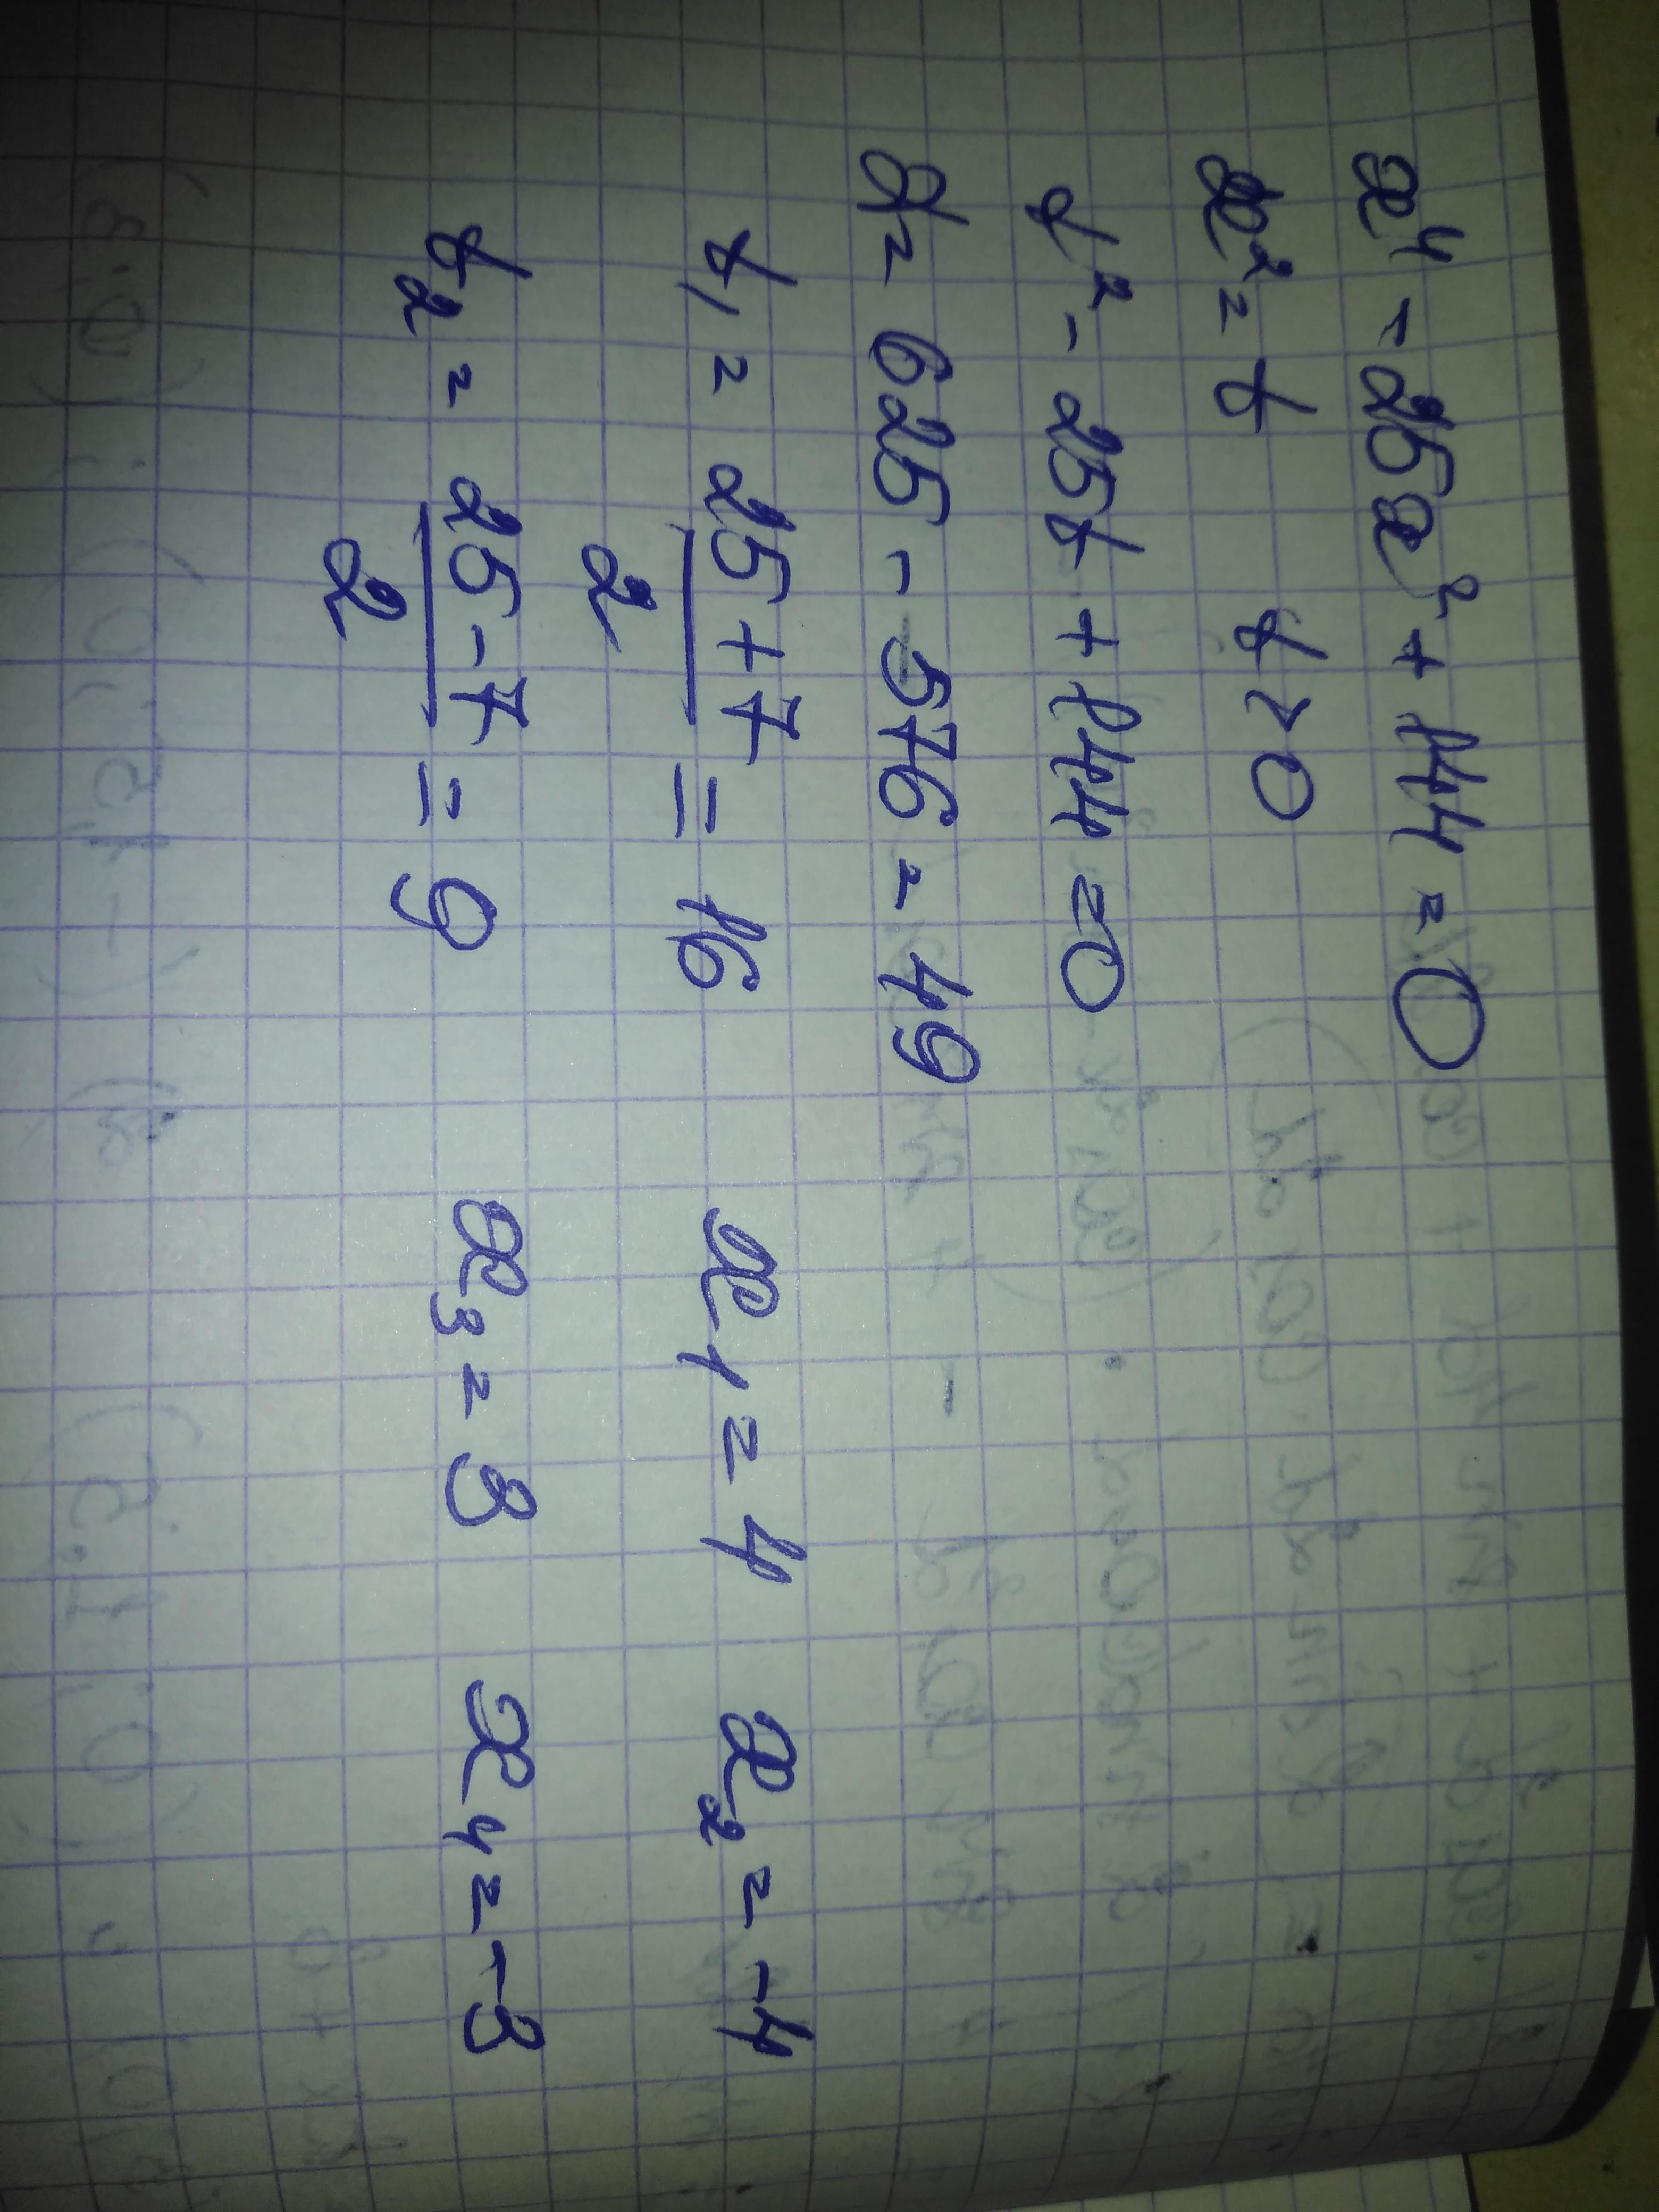 x⁴ - 25x² + 144 = 0
x² = t t ≥ 0
t² - 25t + 144 = 0
D = 625 - 576 = 49
t₁ = (25 + 7)/2 = 16 x₁ = 4 x₂ = -4
t₂ = (25 - 7)/2 = 9 x₃ = 3 x₄ = -3